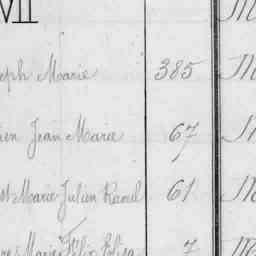 VII M
eph Marie 385 M
ien Jean Marie 67 M
st Marie Julien Raoul 61 M
Marie Félix Elisa 7 M